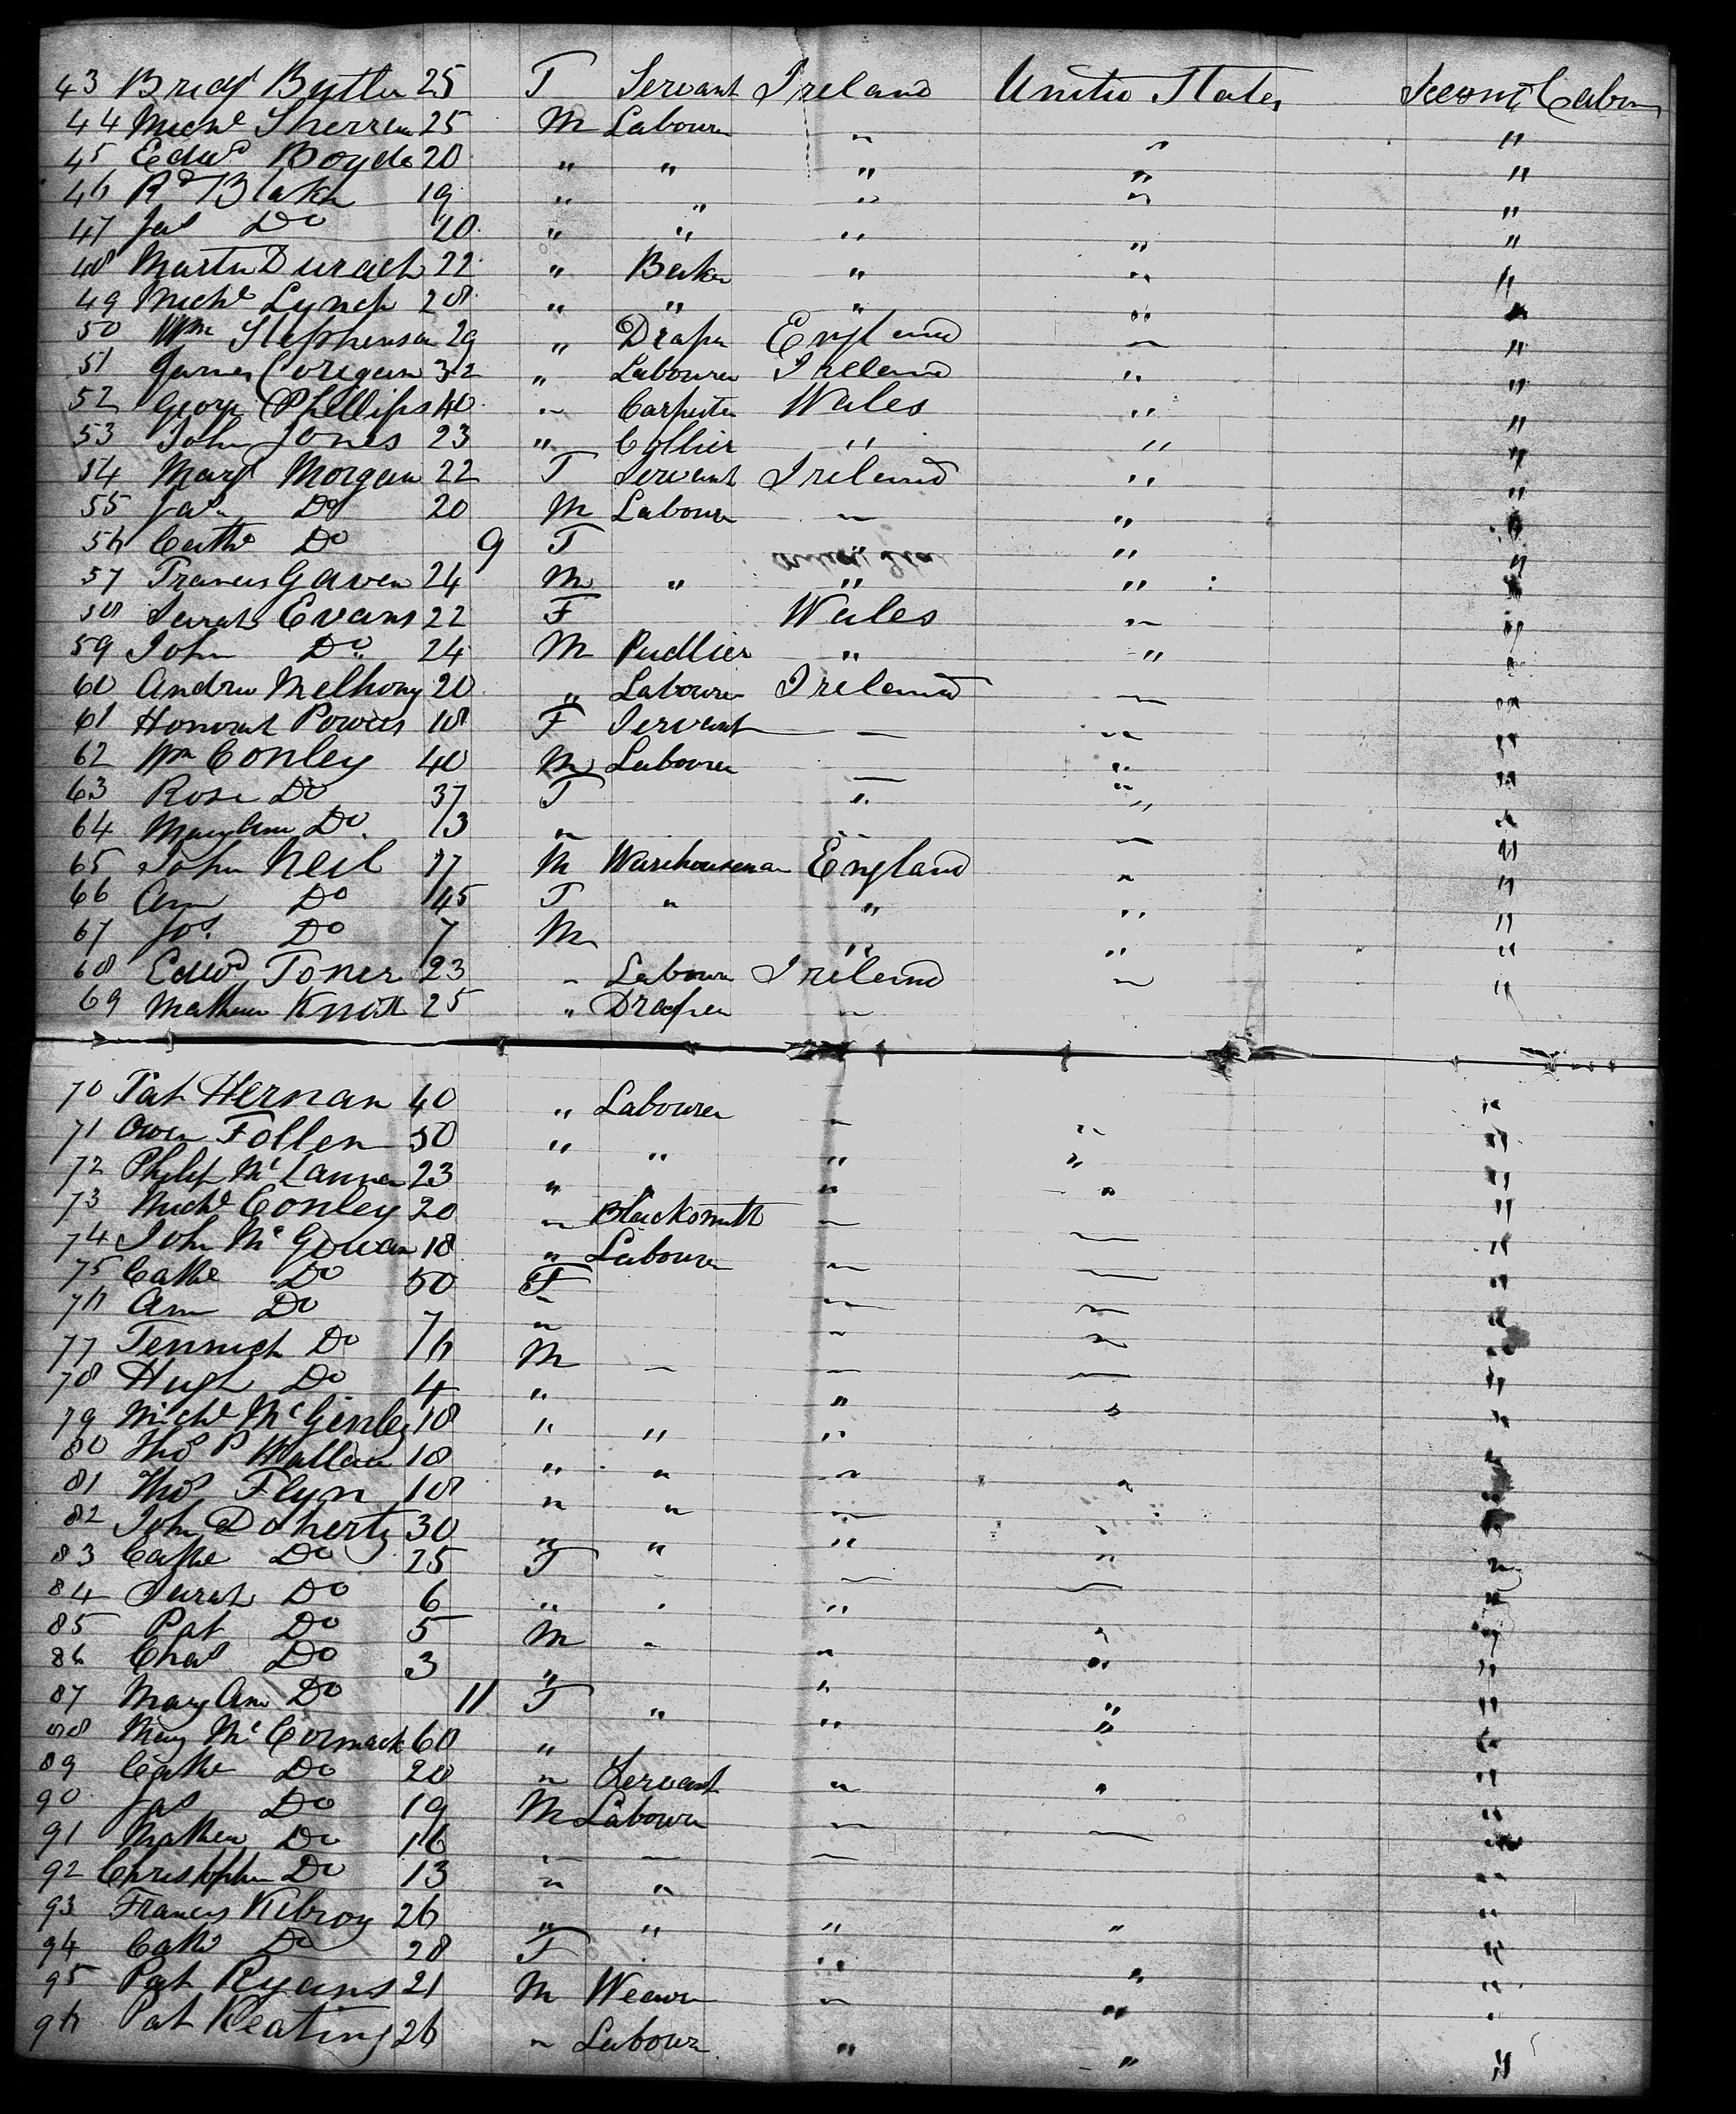 43 Bridt Butler 25 F Servant Ireland United States Second Cabin
44 Michl Sherren 25 M Labourer " " "
45 Edwd Boyde 20 " " " " "
46 Rd Blake 19 " " " " "
47 Jas Do 20 " " " " "
48 Martin Durach 22 " Baker " " "
49 Michl Lynch 28 " " " " "
50 Wm Stephenson 29 " Draper England " "
51 James Corigan 32 " Labourer Ireland " "
52 George Phillips 40 " Carpenter Wales " "
53 John Jones 23 " Collier " " "
54 Margt Morgan 22 F Servant Ireland " "
55 Jas Do 20 M Labourer " " "
56 Cathe Do 9 F " " "
57 Francis Gaven 24 M " " " "
58 Sarah Evans 22 F Wales " "
59 John Do 24 M Pudlier " " "
60 Andrew Melhony 20 " Labourer Ireland " "
61 Honorah Powers 18 F Servant " " "
62 Wm Conley 40 M Labourer " " "
63 Rose Do 37 F " " "
64 Mary Ann Do 13 " " " "
65 John Neil 17 M Warehouseman England " "
66 Ann Do 45 F " " " "
67 Jos. Do 7 M " " "
68 Edwd Toner 23 " Labourer Ireland " "
69 Mathew Knott 25 " Draper "
70 Pat Hernan 40 " Labourer " "
71 Owen Follen 50 " " " " "
72 Philip Mc 23 " " " " "
73 Michl Conley 20 " Blacksmith " "
74 John McGowan 18 " Labourer " " "
75 Cathe Do 50 F " " "
76 Ann Do 7 " " " "
77 Do 16 M " " " "
78 Hugh Do 4 " " " "
79 Michl McGinley 18 " " " " "
80 Thos P Wallace 18 " " " "
81 Thos Flyn 18 " " " " "
82 John Doherty 30 " " " " "
83 Cathe Do 25 F " " " "
84 Sarah Do 6 " " " " "
85 Pat Do 5 M " " " "
86 Chas Do 3 " " " "
87 Mary Ann Do 11 F " " " "
88 Mary McCormack 60 " " " "
89 Cathe Do 20 " Servant " " "
90 Jas Do 19 M Labourer " " "
91 Mathew Do 16 " " " "
92 Christopher Do 13 " " "
93 Francis Kilroy 26 " " " " "
94 Cathe Do 28 F " " "
95 Pat Ryans 21 M Weaver " " "
96 Pat Keating 26 " Labourer " " "